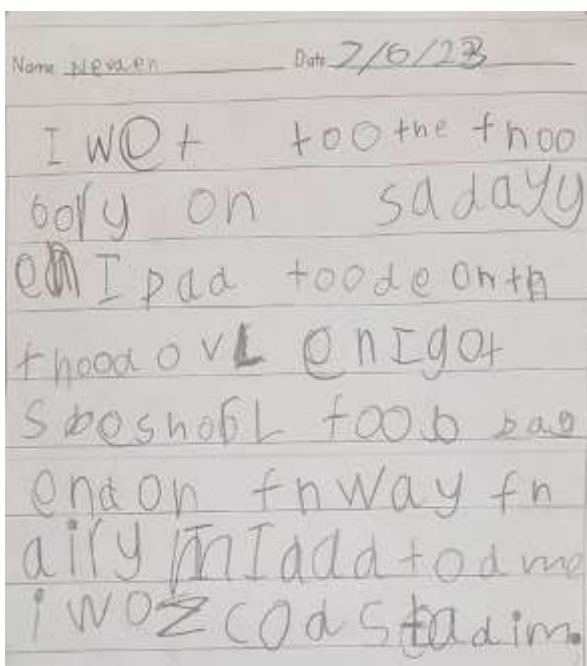 Name Nevaeh Date 7/6/23
I wet too the thoo
boly on sadayy
en I pad too de on th
thood ovL en I got
Sboshobl foob bag
end on thway th
airy In I add tod me
i woz cod stadim.